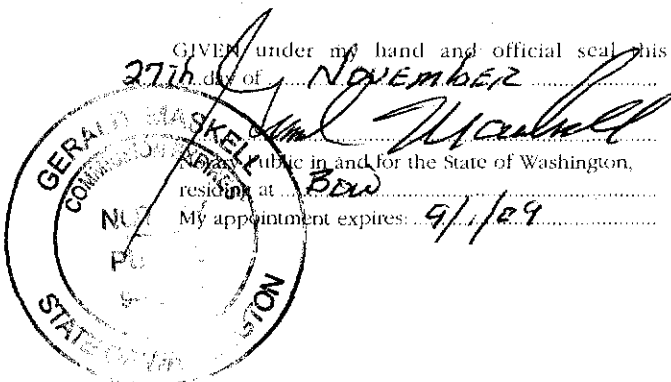 GIVEN under my hand and official seal this
27th day of November
Gerald Maskell
Notary Public in and for the State of Washington,
residing at Bow
My appointment expires: 9/1/09
GERALD MASKELL
COMMISSION EXPIRES
STATE OF